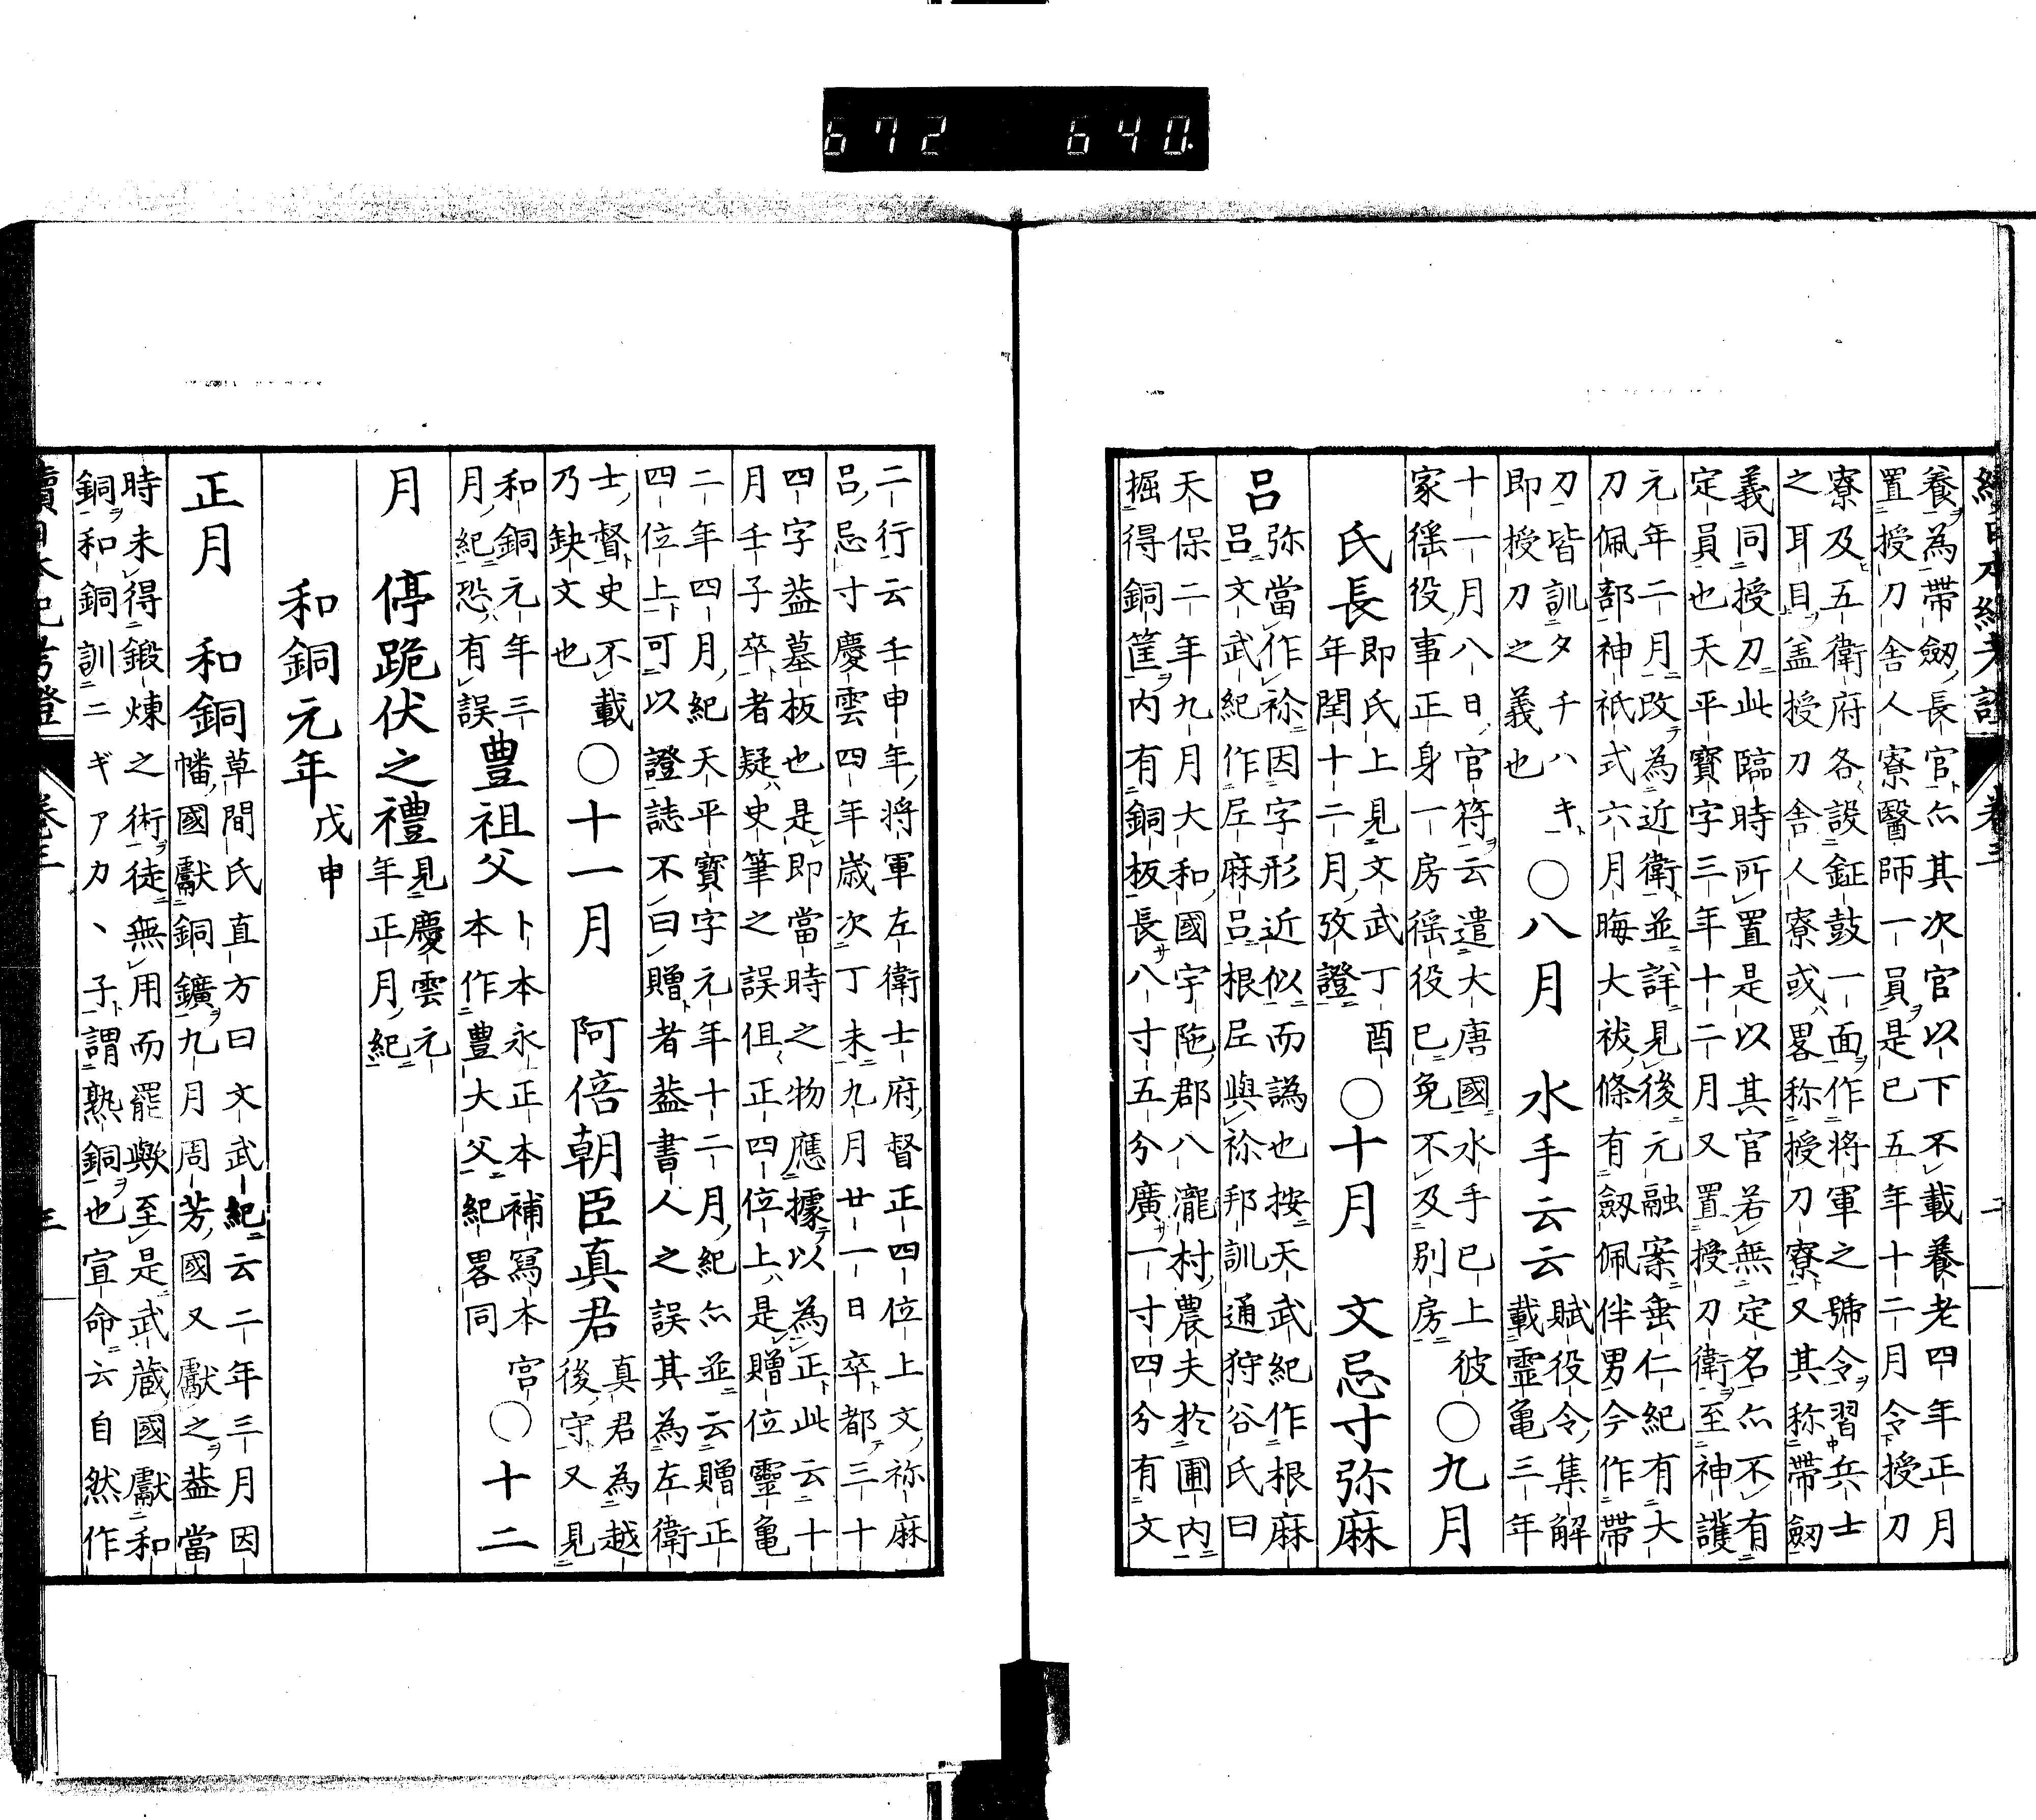 672 640.
養為帶劔長官亦其次官以下不載養老四年正月
置授刀舎人寮醫師一員是已五年十二月令授刀
寮及五衛府各設鉦鼓一面作将軍之號令習兵士
之耳目盖授刀舎人寮或畧称授刀寮又其称帶劔
義同授刀此臨時所置是以其官若無定名亦不有
定員也天平寳字三年十二月又置授刀衛至神護
元年二月改為近衛並詳見後元融案垂仁紀有大
刀佩部神祇式六月晦大祓條有劔佩伴男今作帶
刀皆訓タチハキ
即授刀之義也
○八月 水手云云
賦役令集解
載靈亀三年
十一月八日官符云遣大唐國水手已上彼
家徭役事正身一房徭役已免不及別房
○九月
氏長
即氏上見文武丁酉
年閏十二月攷證
○十月 文忌寸弥麻
呂
弥當作祢因字形近似而譌也按天武紀作根麻
呂文武紀作尼麻呂根尼與祢邦訓通狩谷氏曰
天保二年九月大和國宇陁郡八瀧村農夫於圃内
掘得銅筐内有銅板長八寸五分廣一寸四分有文
二行云壬申年将軍左衛士府督正四位上文祢麻
呂忌寸慶雲四年歳次丁未九月廿一日卒都三十
四字葢墓板也是即當時之物應據以為正此云十
月壬子卒者疑史筆之誤但正四位上是贈位靈亀
二年四月紀天平寳字元年十二月紀亦並云贈正
四位上可以證誌不曰贈者葢書人之誤其為左衛
士督史不載
乃缺文也
○十一月 阿倍朝臣真君
真君為越
後守又見
和銅元年三
月紀恐有誤
豊祖父
卜本永正本補寫本宮
本作豊大父紀畧同
○十二
月 停跪伏之禮
見慶雲元
年正月紀
和銅元年 戊申
正月 和銅
草間氏直方曰文武紀云二年三月因
幡國獻銅鑛九月周芳國又獻之葢當
時未得鍛煉之術徒無用而罷歟至是武蔵國獻和
銅和銅訓ニギアカヽ子謂熟銅也宣命云自然作
續日本紀考證 卷三 三